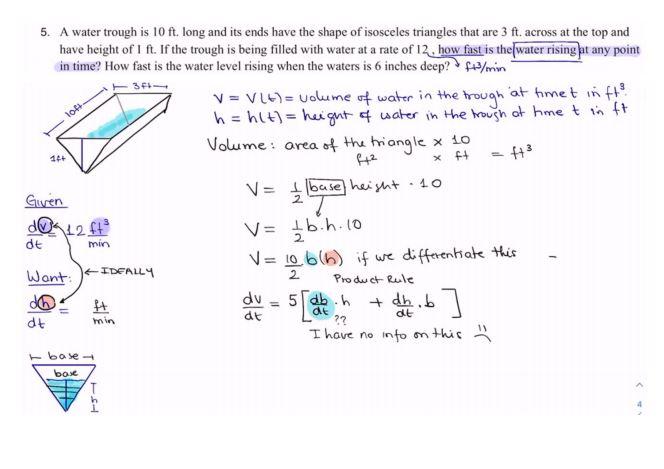 5. A water trough is 10 ft. long and its ends have the shape of isosceles triangles that are 3 ft. across at the top and
have height of 1 ft. If the trough is being filled with water at a rate of 12, how fast is the water rising at any point
in time? How fast is the water level rising when the waters is 6 inches deep? ft3/min
3ft
10ft
1ft
V = V(t) = volume of water in the trough at time t in ft3.
h = h(t) = height of water in the trough at time t in ft
Volume: area of the triangle x 10
ft2 x ft = ft3
V = 1/2 base height · 10
Given
dv/dt = 12 ft3/min
V = 1/2 b·h·10
V = 10/2 b(h) if we differentiate this -
Want: ← IDEALLY
Product Rule
dh/dt = ft/min
dv/dt = 5[db/dt · h + dh/dt · b]
??
I have no info on this
base
base
h
4